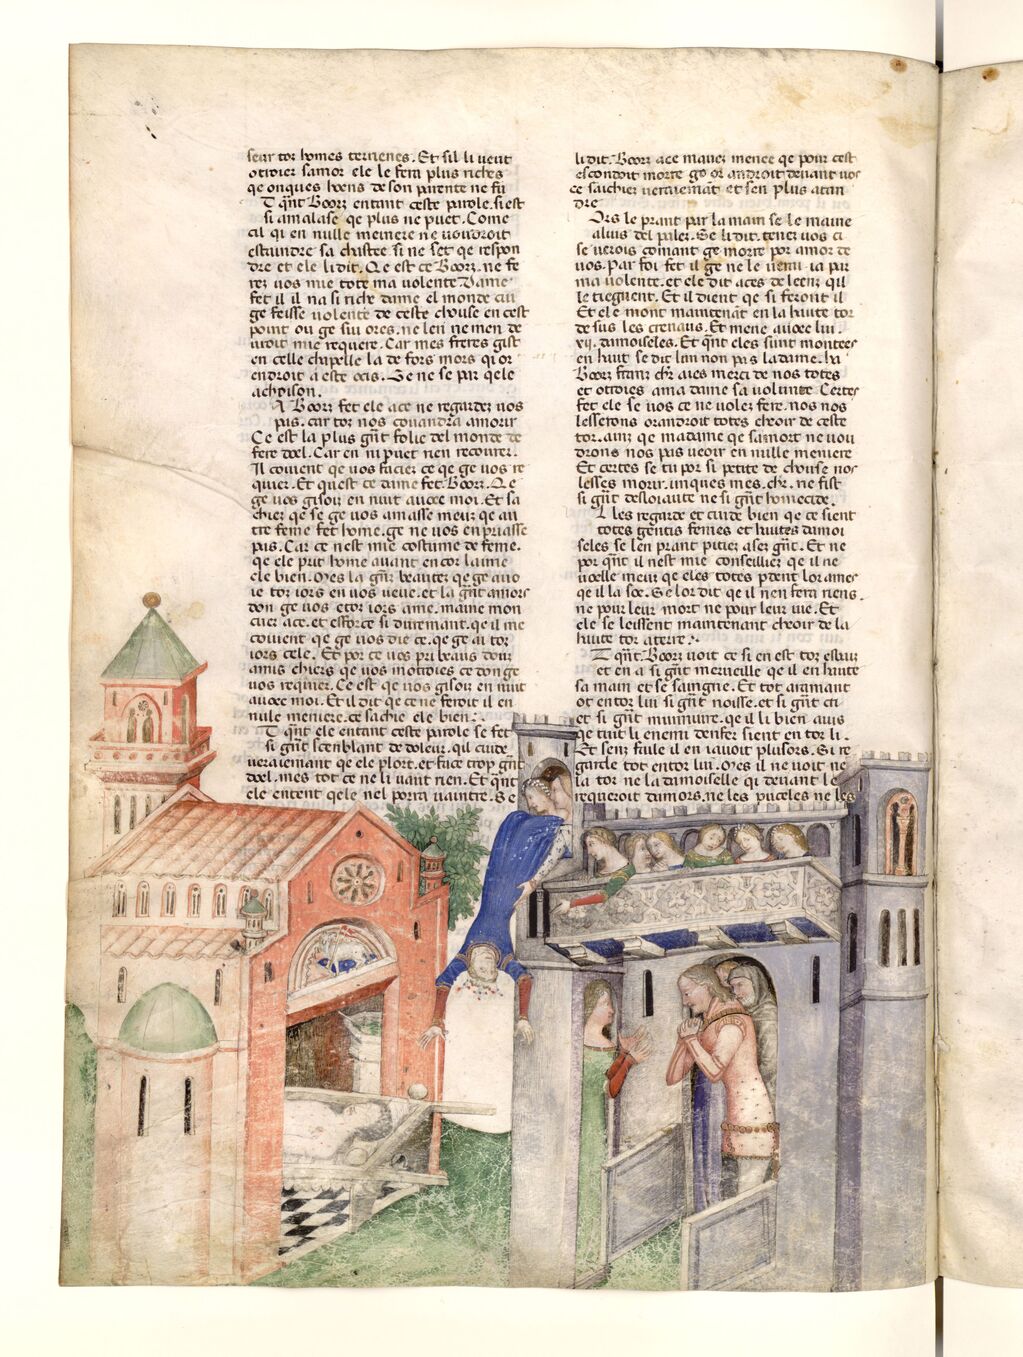 seur toz homes terrienes. Et sil li veut
otroier samor ele le fera plus riches
qe onques hoens de son parente ne fu
T qñt Boorz entant ceste parole. si est
si amalase qe plus ne puet. Come
cil qi en nulle meinere ne vouroit
estaindre sa chastee si ne set qe respon
dre et ele li dit. Qe est ce Boorz. ne fe
rez vos mie tote ma volente Dame
fet il il na si riche dame el monde cui
ge feisse volente de ceste chouse en cest
point ou ge sui ores. ne len ne men de
uroit mie requere. Car mes freres gist
en celle chapelle la de fors mors qi or
endroit a este ocis. Ge ne se par qele
achoison.
A Boorz fet ele ace ne regardez vos
pas. car toz nos couandra amorir
Ce est la plus gñt folie del monde de
fere doel. Car en ni puet rien recourer.
Il couient qe vos facież ce qe ge vos re
quier. Et quest ce dame fet Boorz. Qe
ge vos gisoiz en nuit auoec moi. Et sa
chiez qe se ge vos amasse meuz qe au
tre feme fet home. ge ne vos en priasse
pas. Car ce nest mie costume de feme.
qe ele prit home auant encor laime
ele bien. Mes la gñt beautez qe ge auo
ie toz iors en vos veue. et la gñt amors
don ge vos etoz iors ame. maine mon
cuer ace. et esforce si durement. qe il me
couient qe ge vos die ce. qe ge ai toz
iors cele. Et por ce vos pri beaus douz
amis chiers qe vos motroies ce don ge
vos requier. Ce est qe vos gisoiz en nuit
auoec moi. Et il dit qe ce ne feroit il en
nulle meniere. ce sachie ele bien.
T qñt ele entant ceste parole se fet
si gñt scenblant de doleur. qil cuide
veraiement qe ele plort. et face trop gñt
doel. mes tot ce ne li vaut rien. Et qñt
ele entent qele nel porra vaintre. Se
li dit. Boorz ace mauez menee qe pour cest
escondoit morre ge orandroit deuant vos
ce saichiez veraiemāt et sen plus atan
dre
Ors le prant par la main se le maine
aluis del pales. Se li dit. tenez vos ci
se verois comant ge morre por amor de
vos. Par foi fet il ge ne le verai ia par
ma volente. et ele dit aces de leenz qil
le tieguent. Et il dient qe si feront il
Et ele mont maintenāt en la haute tor
de sus les crenaus. Et mene auoec lui
.xij. damoiseles. Et qñt eles sunt montees
en haut se dit lun non pas la dame. ha
Boorz franz chr̄ aies merci de nos totes
et otroies ama dame sa volunte. Certes
fet ele se vos ce ne volez fere. nos nos
lesserons orandroit totes cheoir de ceste
tor. ainz qe madame qe sa mort ne vou
drons nos pas veoir en nulle meniere
Et certes se tu por si petite de chouse nos
lesses morir. unques mes. chr̄. ne fist
si gñt desloiaute ne si gñt homecide.
l les regarde et cuide bien qe ce sient
totes gentis femes et hautes damoi
seles se len prant pitiez asez gñt. Et ne
por qñt il nest mie conseilliez qe il ne
voelle meuz qe eles totes pdent lor ames
qe il la soe. Se lor dit qe il nen fera riens.
ne pour leur mort ne pour leur vie. Et
ele se leissent maintenant cheoir de la
haute tor aterre.
T qñt. Boorz voit ce si en est toz esbaiz
et en a si gñt merueille qe il en haute
sa main et se saingne. Et tot aramant
ot entor lui si gñt noisse. et si gñt cri
et si gñt muimuire. qe il li bien auis
qe tuit li enemi denfer sient en tor li.
Et senz faile il en i auoit plusors. Si re
garde tot entor lui. Mes il ne voit ne
la tor ne la damoiselle qi deuant le
requeroit damors. ne les puceles ne les